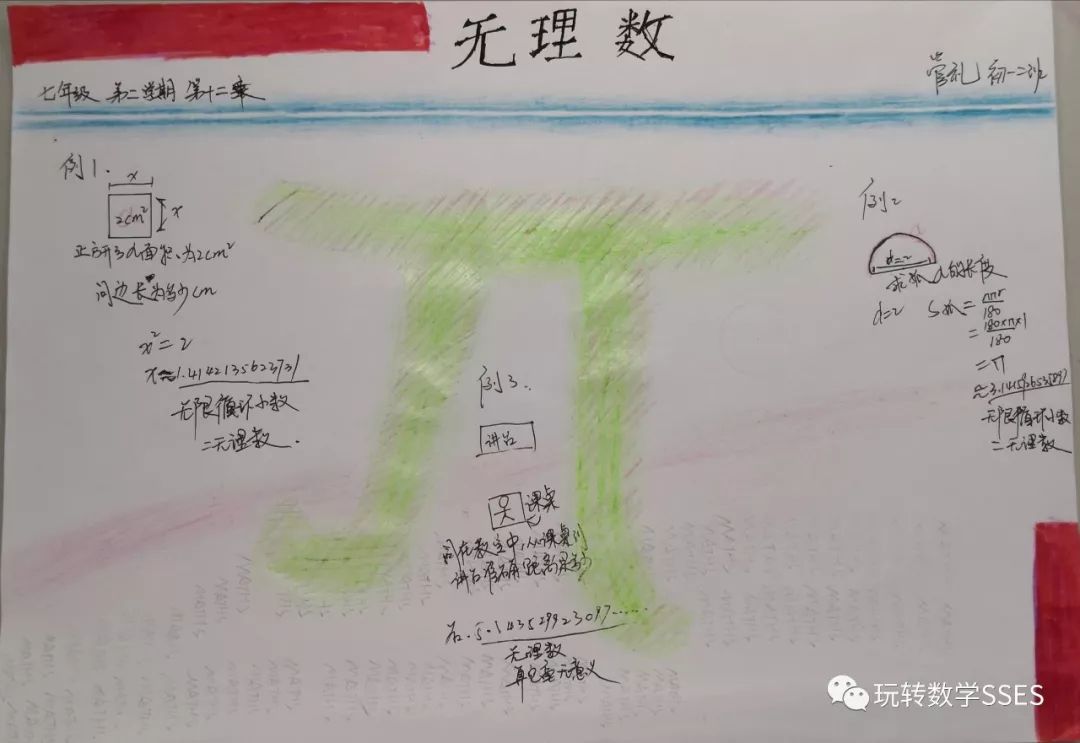 无理数
七年级 第二学期 第十二章
管礼 初一二班
例1.
x
2cm²
x
正方形的面积为2cm²
问边长为多少cm
x²=2
x≈1.4142135623731
无限循环小数
=无理数.
例2
a
d=2
求弧a的长度
d=2 S弧=nπr/180
=180×π×1/180
=π
≈3.14159265358
无限循环小数
=无理数
例3.
讲台
课桌
问在教室中,从课桌到
讲台准确距离是多少
若.5.143529923097……
无理数
算它毫无意义
MATHS
玩转数学SSES